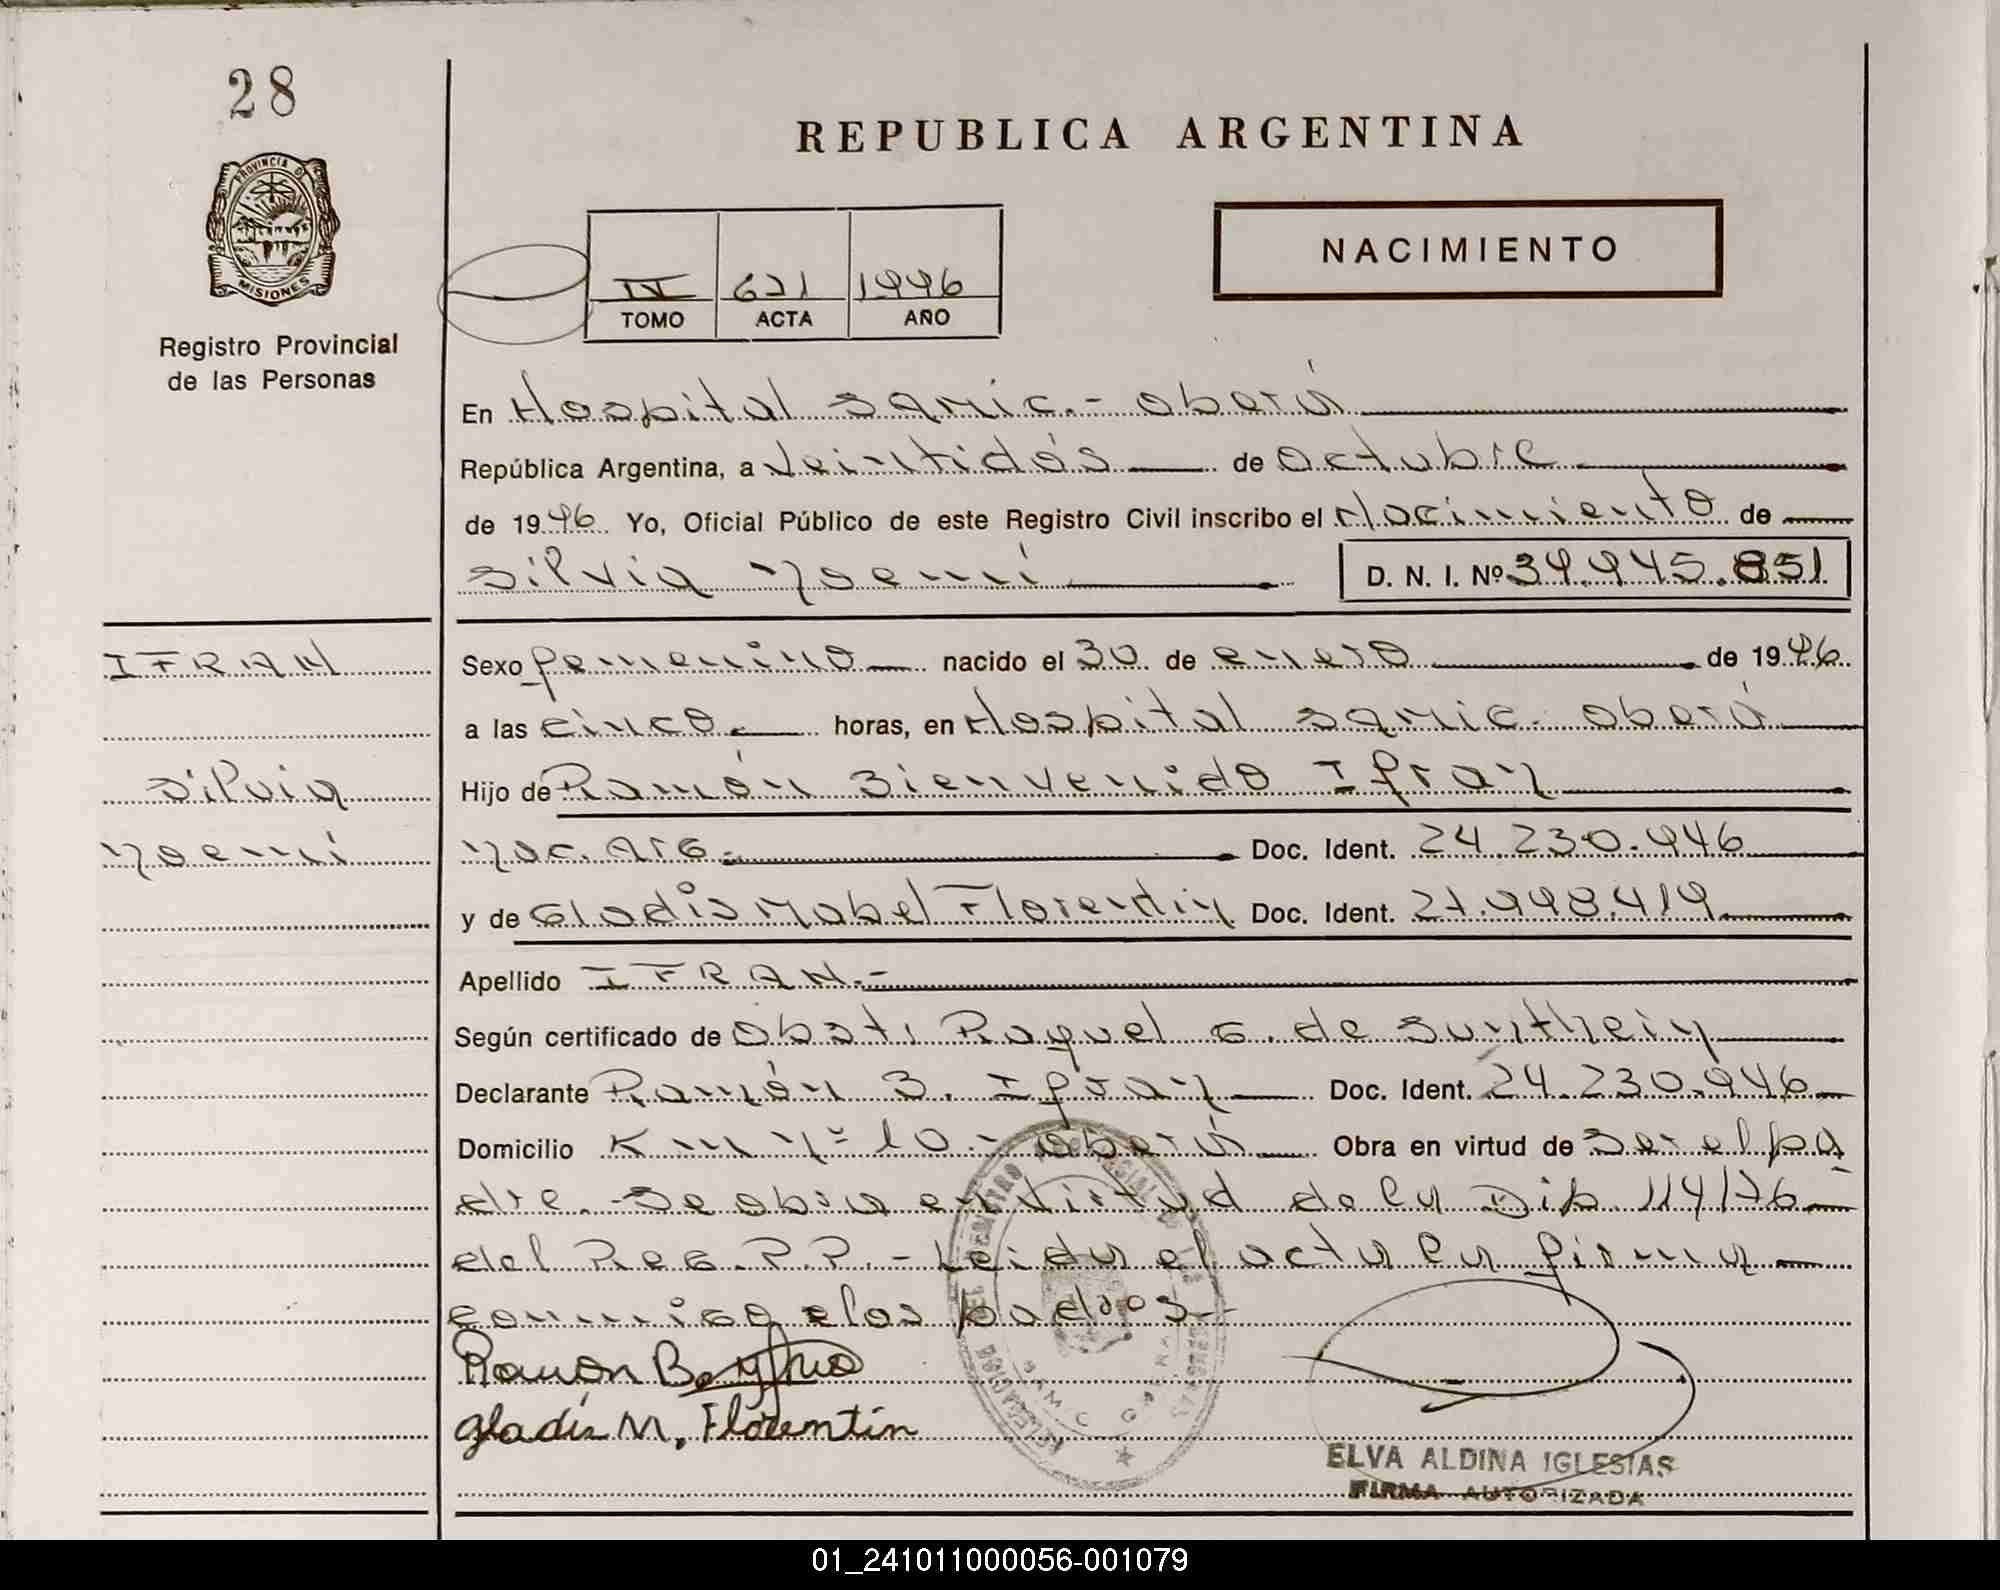 28
REPUBLICA ARGENTINA
PROVINCIA DE
MISIONES
Registro Provincial
de las Personas
NACIMIENTO
IV 621 1996
TOMO ACTA AÑO
En Hospital SAMIC.- Oberá
República Argentina, a Veintidós de Octubre
de 1996 Yo, Oficial Público de este Registro Civil inscribo el Nacimiento de
Silvia Noemí D. N. I. Nº 39.945.851
IFRAN
Silvia
Noemí
Sexo femenino nacido el 30 de enero de 1996
a las cinco horas, en Hospital SAMIC. Oberá
Hijo de Ramón Bienvenido Ifran
Nac. Arg. Doc. Ident. 24.230.946
y de Gladis Mabel Florentin Doc. Ident. 27.998.419
Apellido IFRAN.-
Según certificado de Obst. Raquel G. de Sunthein
Declarante Ramón B. Ifran Doc. Ident. 24.230.946
Domicilio Km Nº 10.- Oberá Obra en virtud de Ser el pa
dre.- Se obra en virtud de la Dip. 114/76
del Reg. P.P.- Leida el acta la firma
conmigo los padres.-
Ramon B.
Gladis M. Florentin
SAMIC
ELVA ALDINA IGLESIAS
FIRMA AUTORIZADA
01_241011000056-001079